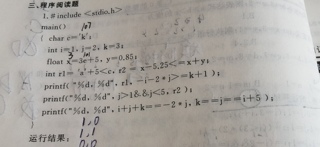 三、程序阅读题
1. #include <stdio.h>
main() 107
{ char c='k';
int i=1, j=2, k=3;
float x=3e+5, y=0.85;
int r1= 'a'+5<c, r2 = x-5.25<=x+y;
printf("%d, %d", r1, -i-2*j>=k+1 );
printf("%d, %d", j>1&&j<5, r2 );
printf("%d, %d", i+j+k==-2*j, k==j==i+5 );
1,0
运行结果: 1,1
0,0